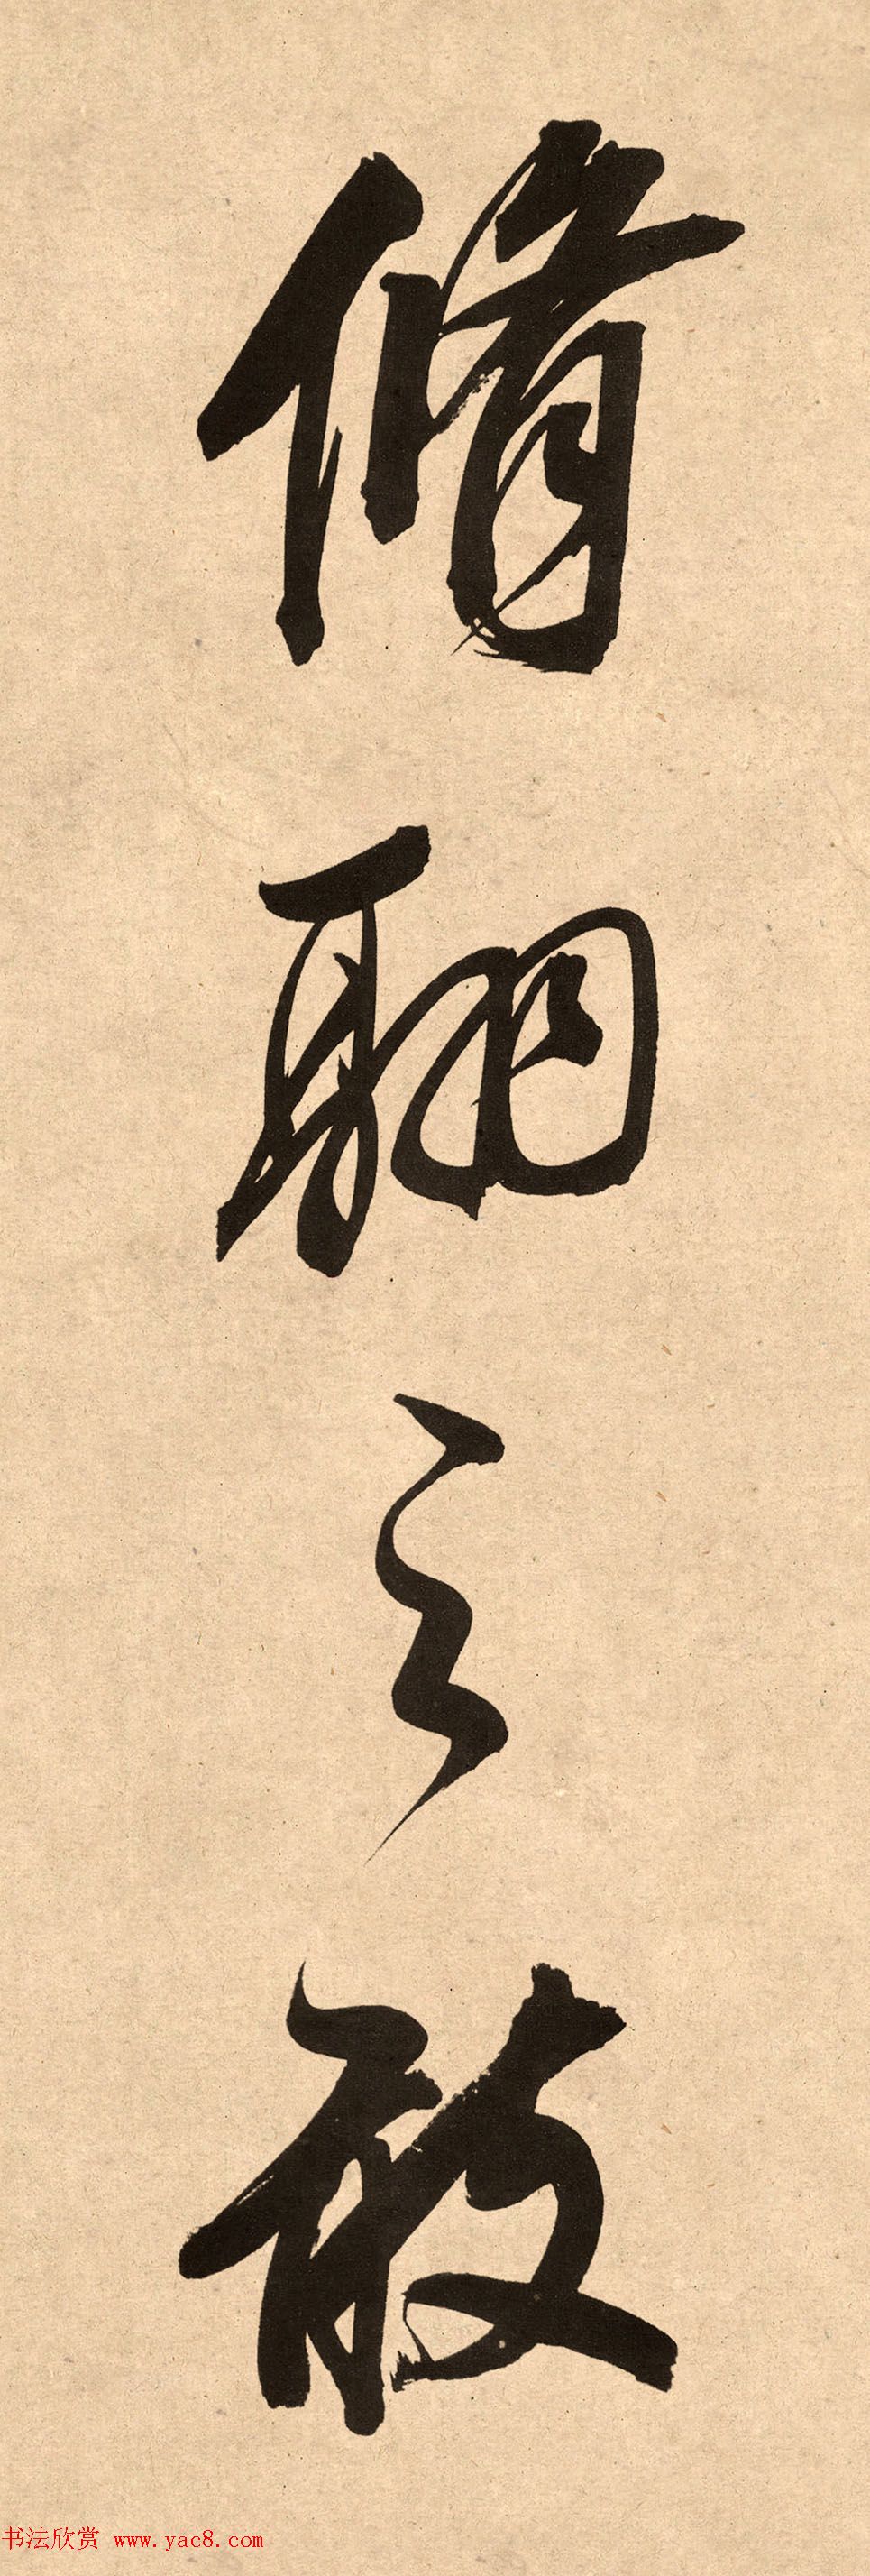 脩翮之
书法欣赏 www.yac8.com